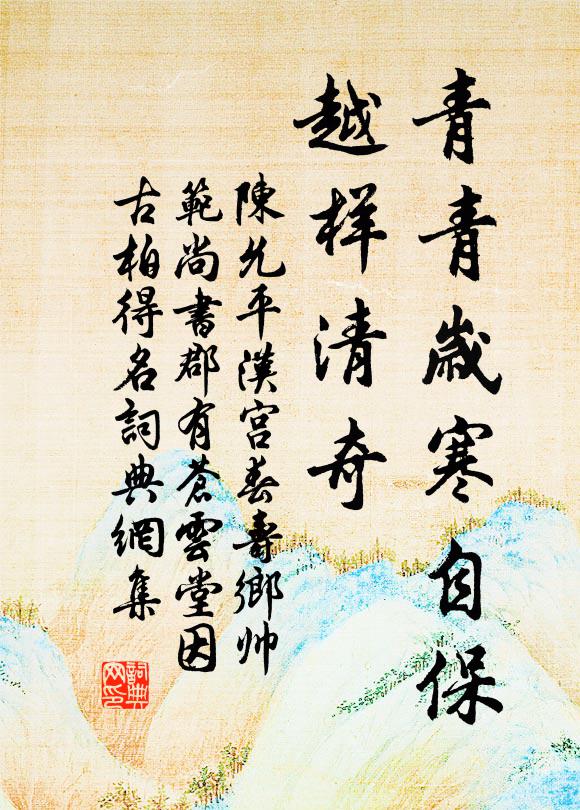 青青歲寒自保
越样清奇
陳允平漢宮春壽鄉帅
範尚書郡有蒼雲堂因
古柏得名詞典網集
詞典网印